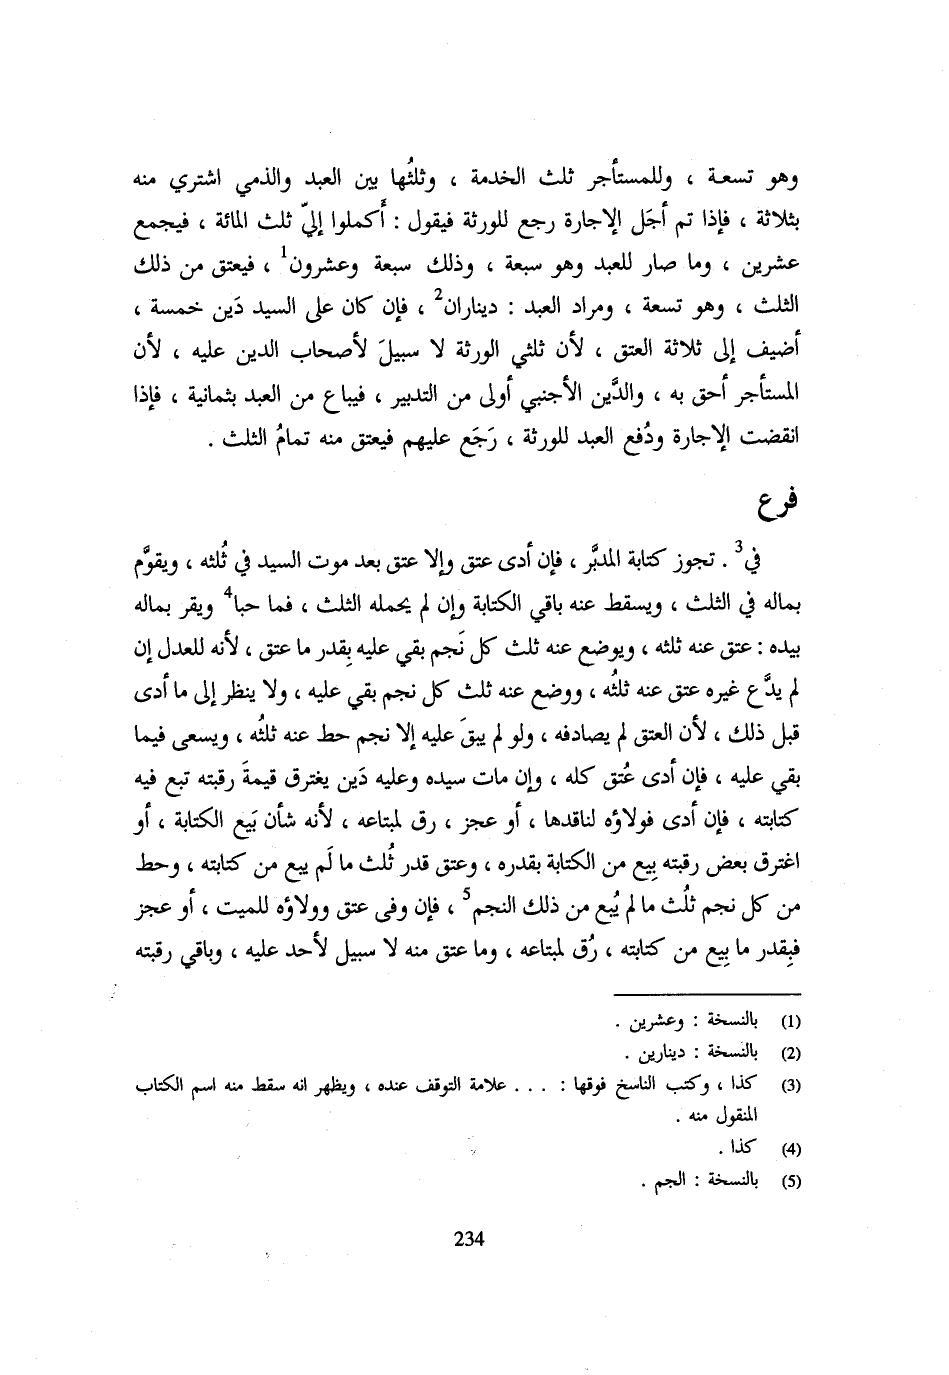 وهو تسعة ، وللمستأجر ثلث الخدمة ، وثلثُها بين العبد والذمي اشتري منه
بثلاثة ، فإذا تم أجَل الإجارة رجع للورثة فيقول : أَكملوا إليّ ثلث المائة ، فيجمع
عشرين ، وما صار للعبد وهو سبعة ، وذلك سبعة وعشرون1 ، فيعتق من ذلك
الثلث ، وهو تسعة ، ومراد العبد : ديناران2 ، فإن كان على السيد دَين خمسة ،
أضيف إلى ثلاثة العتق ، لأن ثلثي الورثة لا سبيلَ لأصحاب الدين عليه ، لأن
المستأجر أحق به ، والدَّين الأجنبي أولى من التدبير ، فيباع من العبد بثمانية ، فإذا
انقضت الإجارة ودُفع العبد للورثة ، رَجَع عليهم فيعتق منه تمامُ الثلث .
فرع
في3 . تجوز كتابة المدبَّر ، فإن أدى عتق وإلا عتق بعد موت السيد في ثُلثه ، ويقوَّم
بماله في الثلث ، ويسقط عنه باقي الكتابة وإن لم يحمله الثلث ، فما حبا4 ويقر بماله
بيده : عتق عنه ثلثه ، ويوضع عنه ثلث كل نَجم بقي عليه بِقدر ما عتق ، لأنه للعدل إن
لم يدَّع غيره عتق عنه ثلثُه ، ووضع عنه ثلث كل نجم بقي عليه ، ولا ينظر إلى ما أدى
قبل ذلك ، لأن العتق لم يصادفه ، ولو لم يبقَ عليه إلا نجم حط عنه ثلثُه ، ويسعى فيما
بقي عليه ، فإن أدى عُتق كله ، وإن مات سيده وعليه دَين يغترق قيمةَ رقبته تبع فيه
كتابته ، فإن أدى فولاؤه لناقدها ، أو عجز ، رق لمبتاعه ، لأنه شأن بَيع الكتابة ، أو
اغترق بعض رقبته بِيع من الكتابة بقدره ، وعتق قدر ثُلث ما لَم يبع من كتابته ، وحط
من كل نجم ثلُث ما لم يُبع من ذلك النجم5 ، فإن وفى عتق وولاؤه للميت ، أو عجز
فبِقدر ما بِيع من كتابته ، رُق لمبتاعه ، وما عتق منه لا سبيل لأحد عليه ، وباقي رقبته
(1) بالنسخة : وعشرين .
(2) بالنسخة : دينارين .
(3) كذا ، وكتب الناسخ فوقها : . . . علامة التوقف عنده ، ويظهر انه سقط منه اسم الكتاب
المنقول منه .
(4) كذا .
(5) بالنسخة : الجم .
234